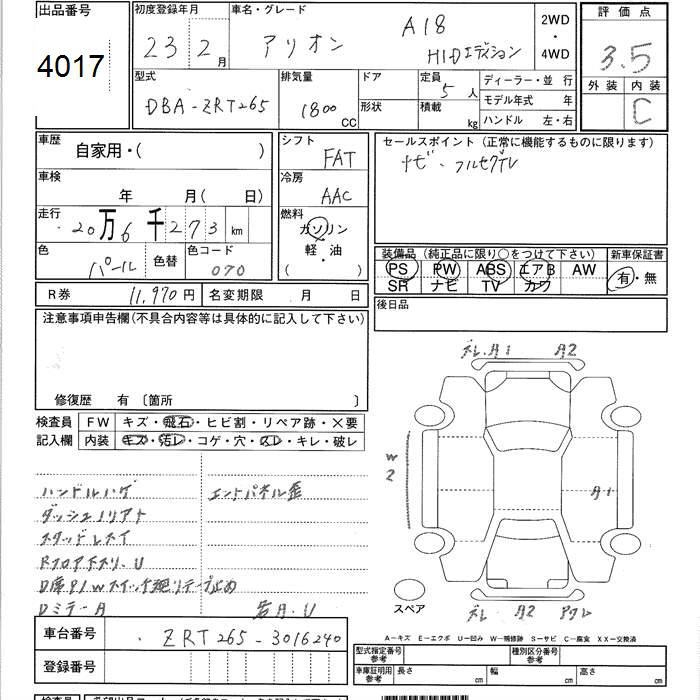 出品番号 初度登録年月 車名・グレード 2WD・4WD 評価点
4017 23 2月 アリオン A18 HIDエディション 3.5
外装 内装 C
型式 排気量 ドア 定員 5人 ディーラー・並行
DBA-ZRT265 1800 CC 形状 積載 kg モデル年式 年
ハンドル 左・右
車歴 自家用・( ) シフト FAT セールスポイント (正常に機能するものに限ります)
ナビ・フルセグTV
車検 年 月( 日) 冷房 AAC
走行 20万6千273km 燃料 ガソリン
軽・油
( ・ )
色 パール 色替 色コード 070
装備品 (純正品に限り○をつけて下さい) 新車保証書
PS PW ABS エアB AW 有・無
SR ナビ TV カワ
R券 11,970円 名変期限 月 日 後日品
注意事項申告欄(不具合内容等は具体的に記入して下さい)
修復歴 有 〔箇所 〕
検査員 FW キズ・飛石・ヒビ割・リペア跡・×要
記入欄 内装 キズ・汚レ・コゲ・穴・スレ・キレ・破レ
ハンドルハゲ エンドパネル歪
ダッシュノリアト
ステッドレスイ
D席P/Wスイッチ廻りテープ止め
DミラーA
A1 A2
W2
A1
A2
スペア
車台番号 ZRT265-3016240
登録番号
A-キズ E-エクボ U-凹み W-補修跡 S-サビ C-腐食 XX-交換済
型式指定番号 参考 種別区分番号 参考
車庫証明用 参考 長さ cm 幅 cm 高さ cm